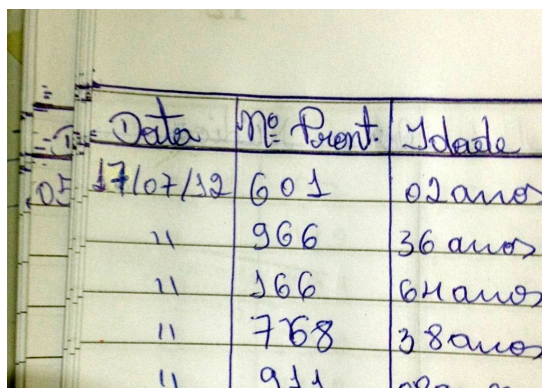 Data Nº Pront. Idade
17/07/12 601 02 anos
" 966 36 anos
" 166 64 anos
" 768 38 anos
" 911